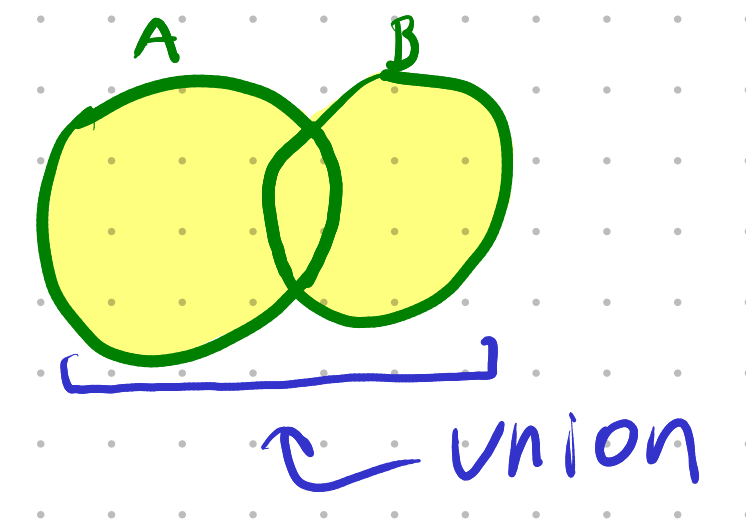 A B
union